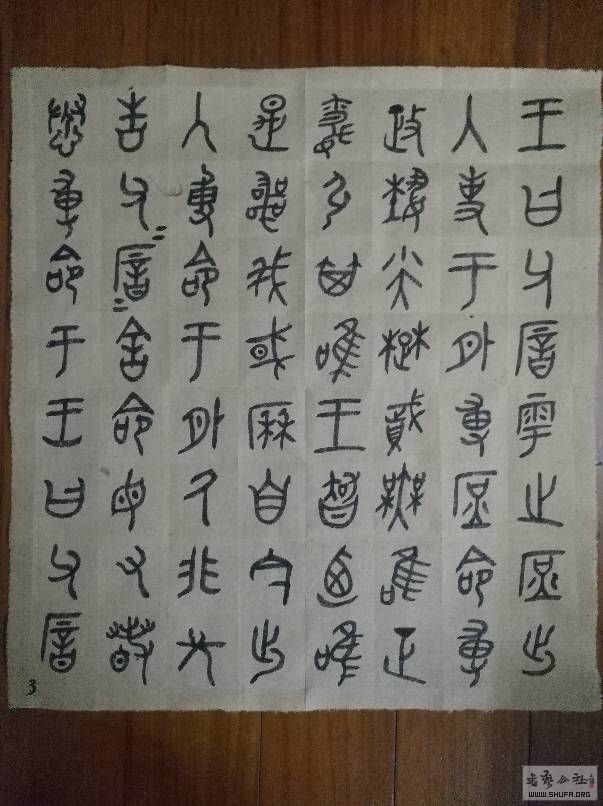 王曰父厝雩之庶出
入事于外尃庶命尃
政埶小大楚賦無唯正
聞引其唯王智廼唯
是喪我或厤自今出
入尃命于外厥非先
告父=厝=舍命毋又敢
憃尃命于王曰父厝
3
書藝公社
WWW.SHUFA.ORG